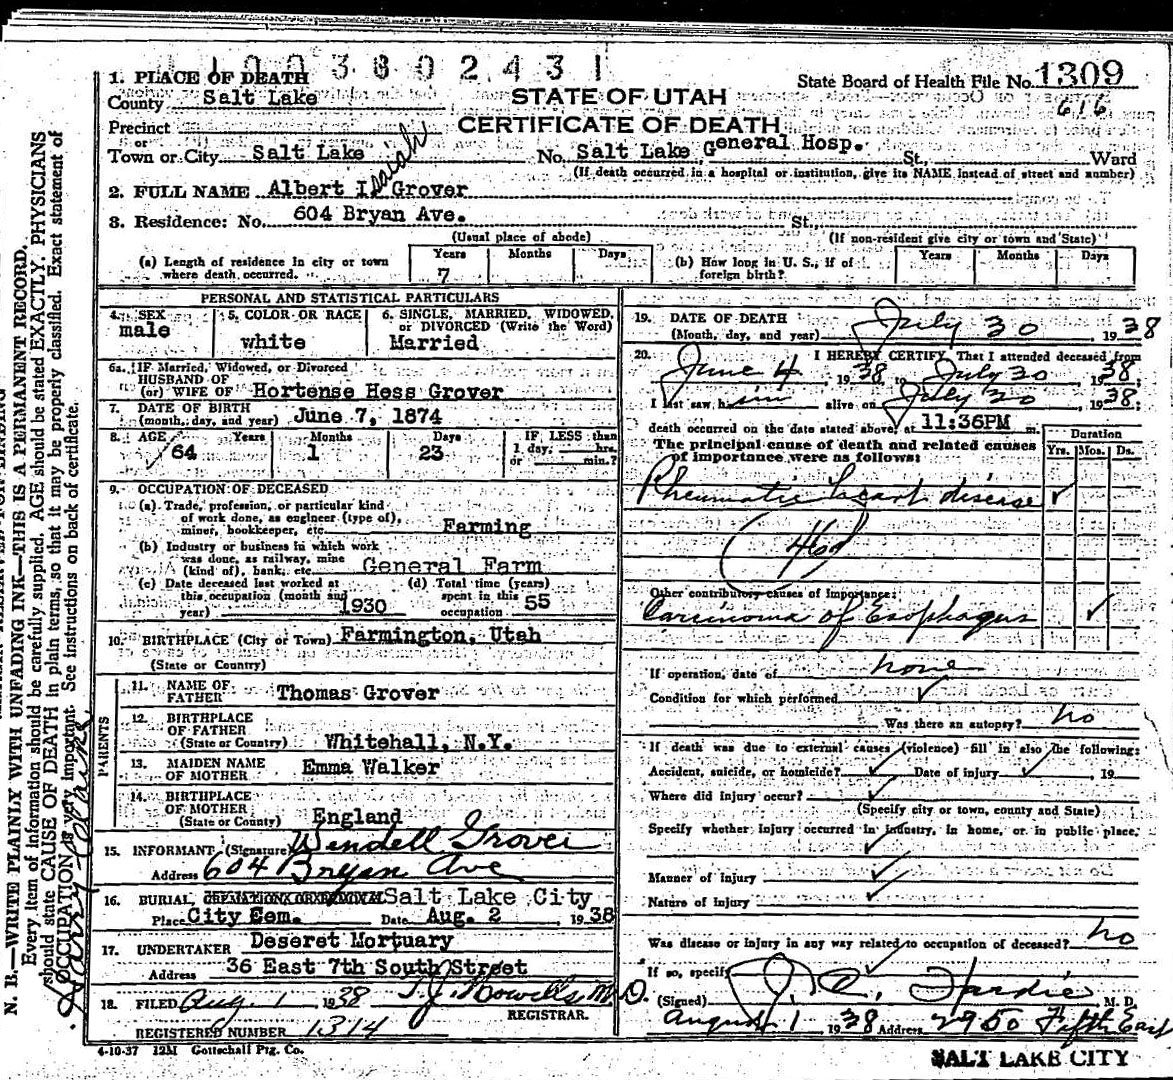 1003802431
1. PLACE OF DEATH
State Board of Health File No. 1309
County Salt Lake
STATE OF UTAH
616
Precinct
CERTIFICATE OF DEATH
or
Town or City Salt Lake No. Salt Lake General Hosp. St., Ward
(If death occurred in a hospital or institution, give its NAME instead of street and number)
2. FULL NAME Albert I Isaiah Grover
3. Residence: No. 604 Bryan Ave. St.
(Usual place of abode) (If non-resident give city or town and State)
(a) Length of residence in city or town where death occurred. Years 7 Months Days
(b) How long in U. S., if of foreign birth? Years Months Days
PERSONAL AND STATISTICAL PARTICULARS
4. SEX male
5. COLOR OR RACE white
6. SINGLE, MARRIED, WIDOWED, or DIVORCED (Write the Word) Married
6a. IF Married, Widowed, or Divorced
HUSBAND OF
(or) WIFE OF Hortense Hess Grover
7. DATE OF BIRTH
(month, day, and year) June 7, 1874
8. AGE 64 Years Months 1 Days 23 IF LESS than
1 day, hrs.
or min.?
9. OCCUPATION OF DECEASED
(a) Trade, profession, or particular kind
of work done, as engineer (type of),
miner, bookkeeper, etc. Farming
(b) Industry or business in which work
was done, as railway, mine
(kind of), bank, etc. General Farm
(c) Date deceased last worked at
this occupation (month and
year) 1930
(d) Total time (years)
spent in this
occupation 55
10. BIRTHPLACE (City or Town) Farmington, Utah
(State or Country)
PARENTS
11. NAME OF
FATHER Thomas Grover
12. BIRTHPLACE
OF FATHER
(State or Country) Whitehall, N.Y.
13. MAIDEN NAME
OF MOTHER Emma Walker
14. BIRTHPLACE
OF MOTHER
(State or Country) England
15. INFORMANT (Signature) Wendell Grover
Address 604 Bryan Ave
16. BURIAL, CREMATION OR REMOVAL Salt Lake City
Place City Cem. Date Aug. 2 1938
17. UNDERTAKER Deseret Mortuary
Address 36 East 7th South Street
18. FILED Aug. 1 1938 T. J. Howells M.D.
REGISTRAR.
REGISTERED NUMBER 1314
4-10-37 12M Gottschall Ptg. Co.
19. DATE OF DEATH
(Month, day, and year) July 30, 1938
20. I HEREBY CERTIFY, That I attended deceased from
June 4, 1938, to July 30, 1938;
I last saw him alive on July 30, 1938;
death occurred on the date stated above, at 11:36PM m.
The principal cause of death and related causes
of importance were as follows:
Duration
Yrs. Mos. Ds.
Rheumatic heart disease ✓
Other contributory causes of Importance:
Carcinoma of Esophagus ✓
If operation, date of none
Condition for which performed ✓
Was there an autopsy? no
If death was due to external causes (violence) fill in also the following:
Accident, suicide, or homicide? ✓ Date of injury ✓, 19
Where did injury occur? ✓
(Specify city or town, county and State)
Specify whether injury occurred in industry, in home, or in public place.
✓
Manner of injury ✓
Nature of injury ✓
Was disease or injury in any way related to occupation of deceased? no
If so, specify ✓
(Signed) J. C. Hardie M. D.
August 1 1938 Address 2950 Fifth East
SALT LAKE CITY
N. B.—WRITE PLAINLY WITH UNFADING INK—THIS IS A PERMANENT RECORD.
Every item of information should be carefully supplied. AGE should be stated EXACTLY. PHYSICIANS
should state CAUSE OF DEATH in plain terms, so that it may be properly classified. Exact statement of
OCCUPATION is very important. See instructions on back of certificate.